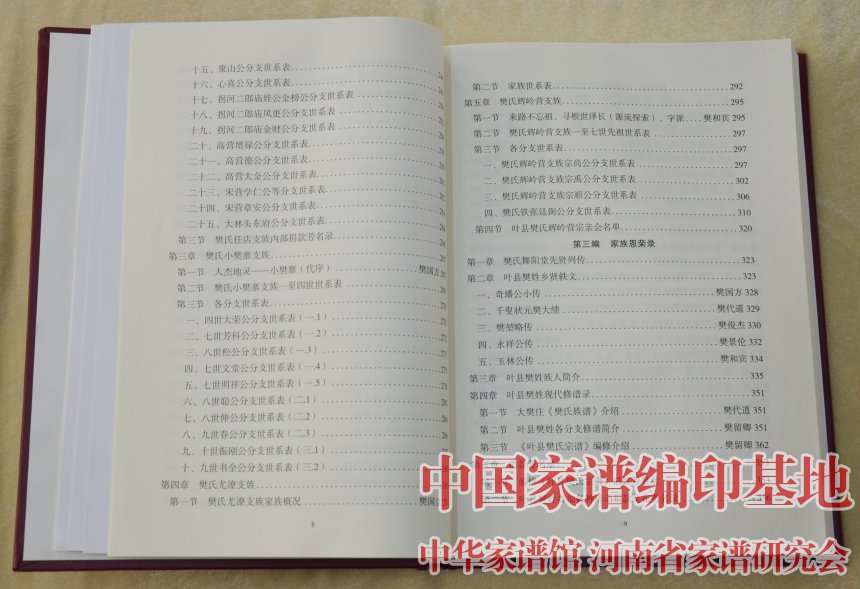 十五、聚山公分支世系表
十六、心喜公分支世系表
十七、拐河二郎庙娃公金榜公分支世系表
十八、拐河二郎庙凤更公分支世系表
十九、拐河二郎庙金财公分支世系表
二十、高营增禄公分支世系表
二十一、高营德公分支世系表
二十二、高营大金公分支世系表
二十三、宋营学仁公等分支世系表
二十四、宋营章安公分支世系表
二十五、大林头东府公分支世系表
第三节 樊氏任店支族内部捐款芳名录
第三章 樊氏小樊寨支族
第一节 人杰地灵——小樊寨（代序） 樊国方
第二节 樊氏小樊寨支族一至四世世系表
第三节 各分支世系表
一、四世大荣公分支世系表（一.1）
二、七世芳科公分支世系表（一.2）
三、八世松公分支世系表（一.3）
四、七世文堂公分支世系表（一.4）
五、七世明祥公分支世系表（一.5）
六、八世聪公分支世系表（二.1）
七、八世伸公分支世系表（二.2）
八、九世春公分支世系表（二.3）
九、十世振刚公分支世系表（三.1）
十、九世书全公分支世系表（三.2）
第四章 樊氏尤潦支族
第一节 樊氏尤潦支族家族概况 樊国方
8
第二节 家族世系表 292
第五章 樊氏辉岭营支族 295
第一节 来路不忘祖、寻根世泽长（源流探索）、字派 樊和宾 295
第二节 樊氏辉岭营支族一至七世先祖世系表 297
第三节 各分支世系表 297
一、樊氏辉岭营支族宗尚公分支世系表 297
二、樊氏辉岭营支族宗禹公分支世系表 302
三、樊氏辉岭营支族宗顺公分支世系表 306
四、樊氏铁张廷弼公分支世系表 310
第四节 叶县樊氏辉岭营宗亲会名单 320
第三编 家族恩荣录
第一章 樊氏舞阳堂先贤列传 323
第二章 叶县樊姓乡贤轶文 323
一、奇璠公小传 樊国方 328
二、千叟状元樊大绩 樊代道 329
三、樊堃略传 樊俊杰 330
四、永祥公传 樊景伦 332
五、玉林公传 樊和宾 334
第三章 叶县樊姓族人简介 335
第四章 叶县樊姓现代修谱录 351
第一节 大樊庄《樊氏族谱》介绍 樊代道 351
第二节 叶县樊姓各分支修谱简介 樊留卿 351
第三节 《叶县樊氏宗谱》编修介绍 樊留卿 362
9
中国家谱编印基地
中华家谱馆 河南省家谱研究会